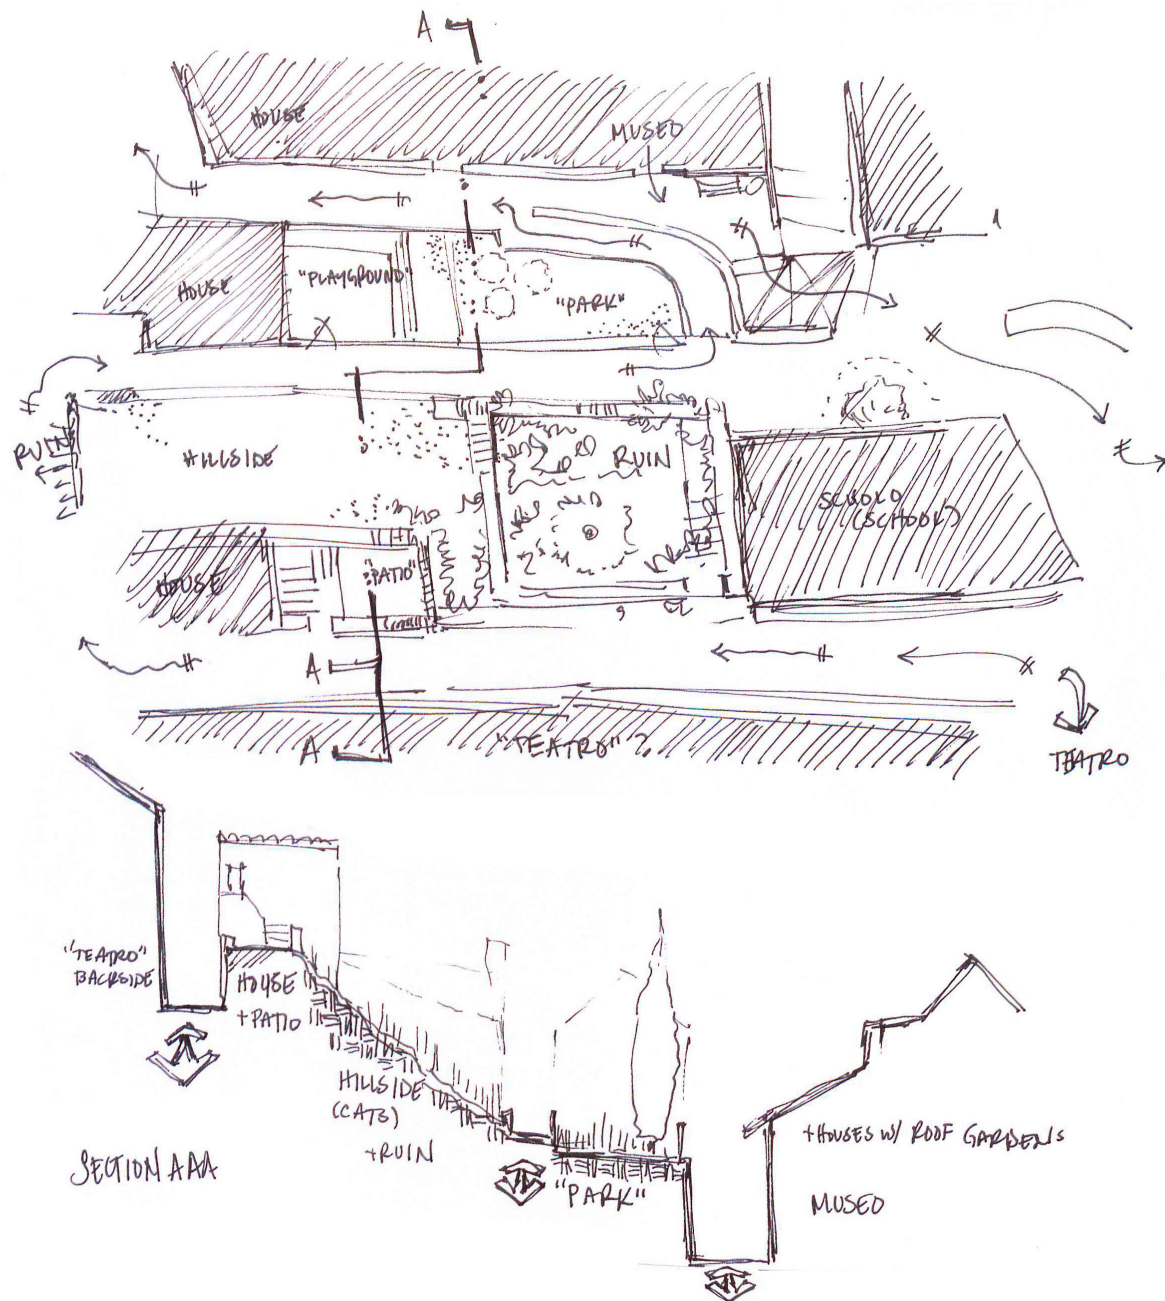 A
HOUSE
MUSEO
HOUSE
"PLAYGROUND"
"PARK"
RUIN
HILLSIDE
RUIN
SCUOLO
(SCHOOL)
HOUSE
"PATIO"
A
A
"TEATRO"?
TEATRO
"TEATRO"
BACKSIDE
HOUSE
+PATIO
HILLSIDE
(CATS)
+RUIN
"PARK"
+HOUSES W/ ROOF GARDENS
MUSEO
SECTION AAA